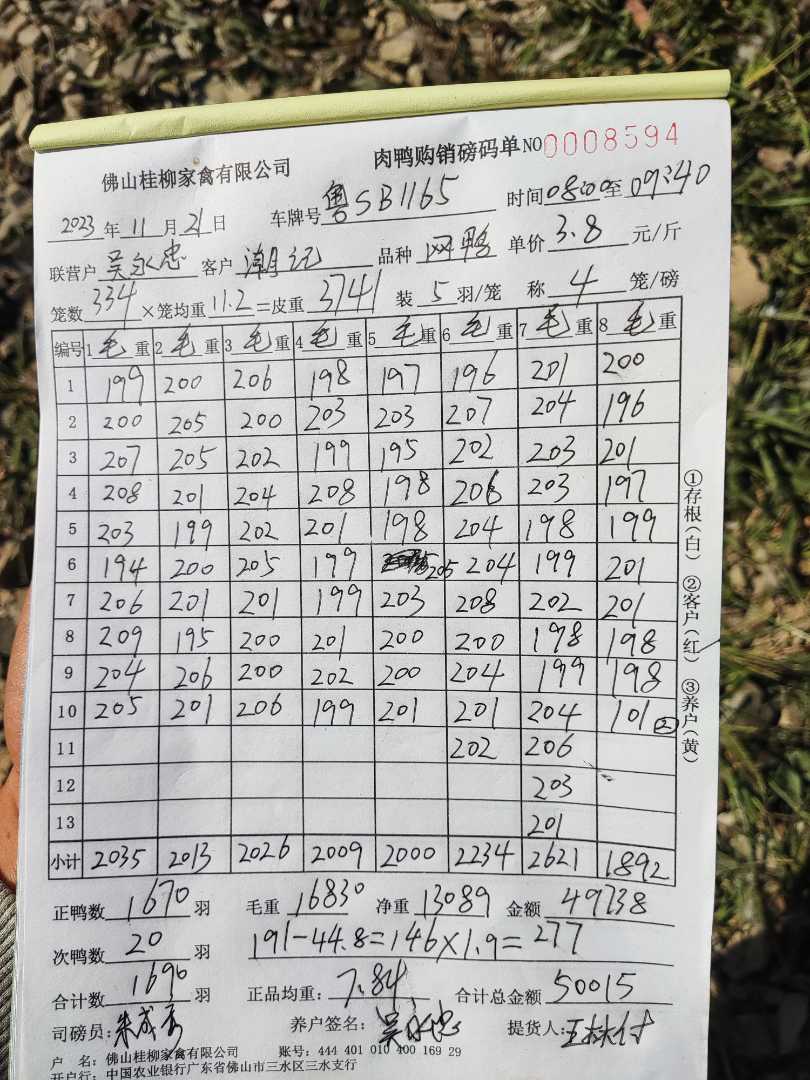 佛山桂柳家禽有限公司 肉鸭购销磅码单 NO 0008594
2023 年 11 月 21 日 车牌号 粤SB1165 时间 0800 至 09:40
联营户 吴永忠 客户 潮记 品种 网鸭 单价 3.8 元/斤
笼数 334 ×笼均重 11.2 =皮重 3741 装 5 羽/笼 称 4 笼/磅
编号 1 毛 重 2 毛 重 3 毛 重 4 毛 重 5 毛 重 6 毛 重 7 毛 重 8 毛 重
1 199 200 206 198 197 196 201 200
2 200 205 200 203 203 207 204 196
3 207 205 202 199 195 202 203 201
4 208 201 204 208 198 206 203 197
5 203 199 202 201 198 204 198 199
6 194 200 205 199 205 204 199 201
7 206 201 201 199 203 208 202 201
8 209 195 200 201 200 200 198 198
9 204 206 200 202 200 204 199 198
10 205 201 206 199 201 201 204 101 ②
11 202 206
12 203
13 201
小计 2035 2013 2026 2009 2000 2234 2621 1892
①存根(白) ②客户(红) ③养户(黄)
正鸭数 1670 羽 毛重 16830 净重 13089 金额 49738
次鸭数 20 羽 191-44.8=146×1.9=277
合计数 1690 羽 正品均重: 7.84 合计总金额 50015
司磅员: 养户签名: 吴永忠 提货人:
户 名: 佛山桂柳家禽有限公司 账号: 444 401 010 400 169 29
开户行: 中国农业银行广东省佛山市三水区三水支行